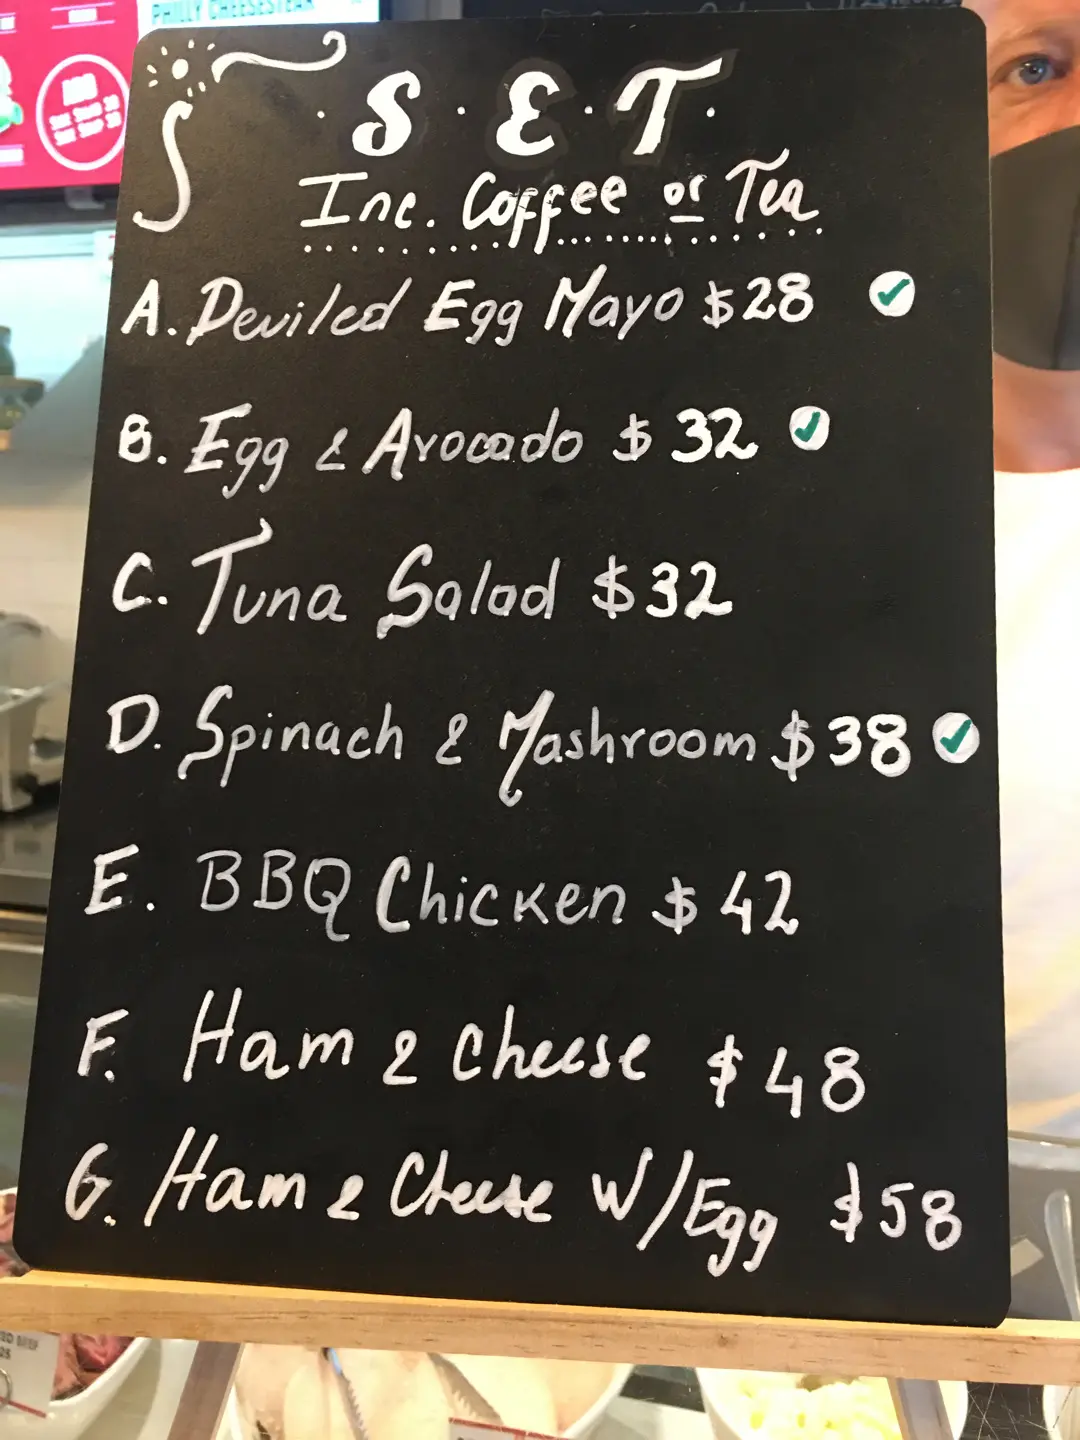 PHILLY CHEESESTEAK
S.E.T.
Inc. Coffee or Tea
A. Deviled Egg Mayo $28
B. Egg & Avocado $32
C. Tuna Salad $32
D. Spinach & Mashroom $38
E. BBQ Chicken $42
F. Ham & Cheese $48
G. Ham & Cheese W/Egg $58